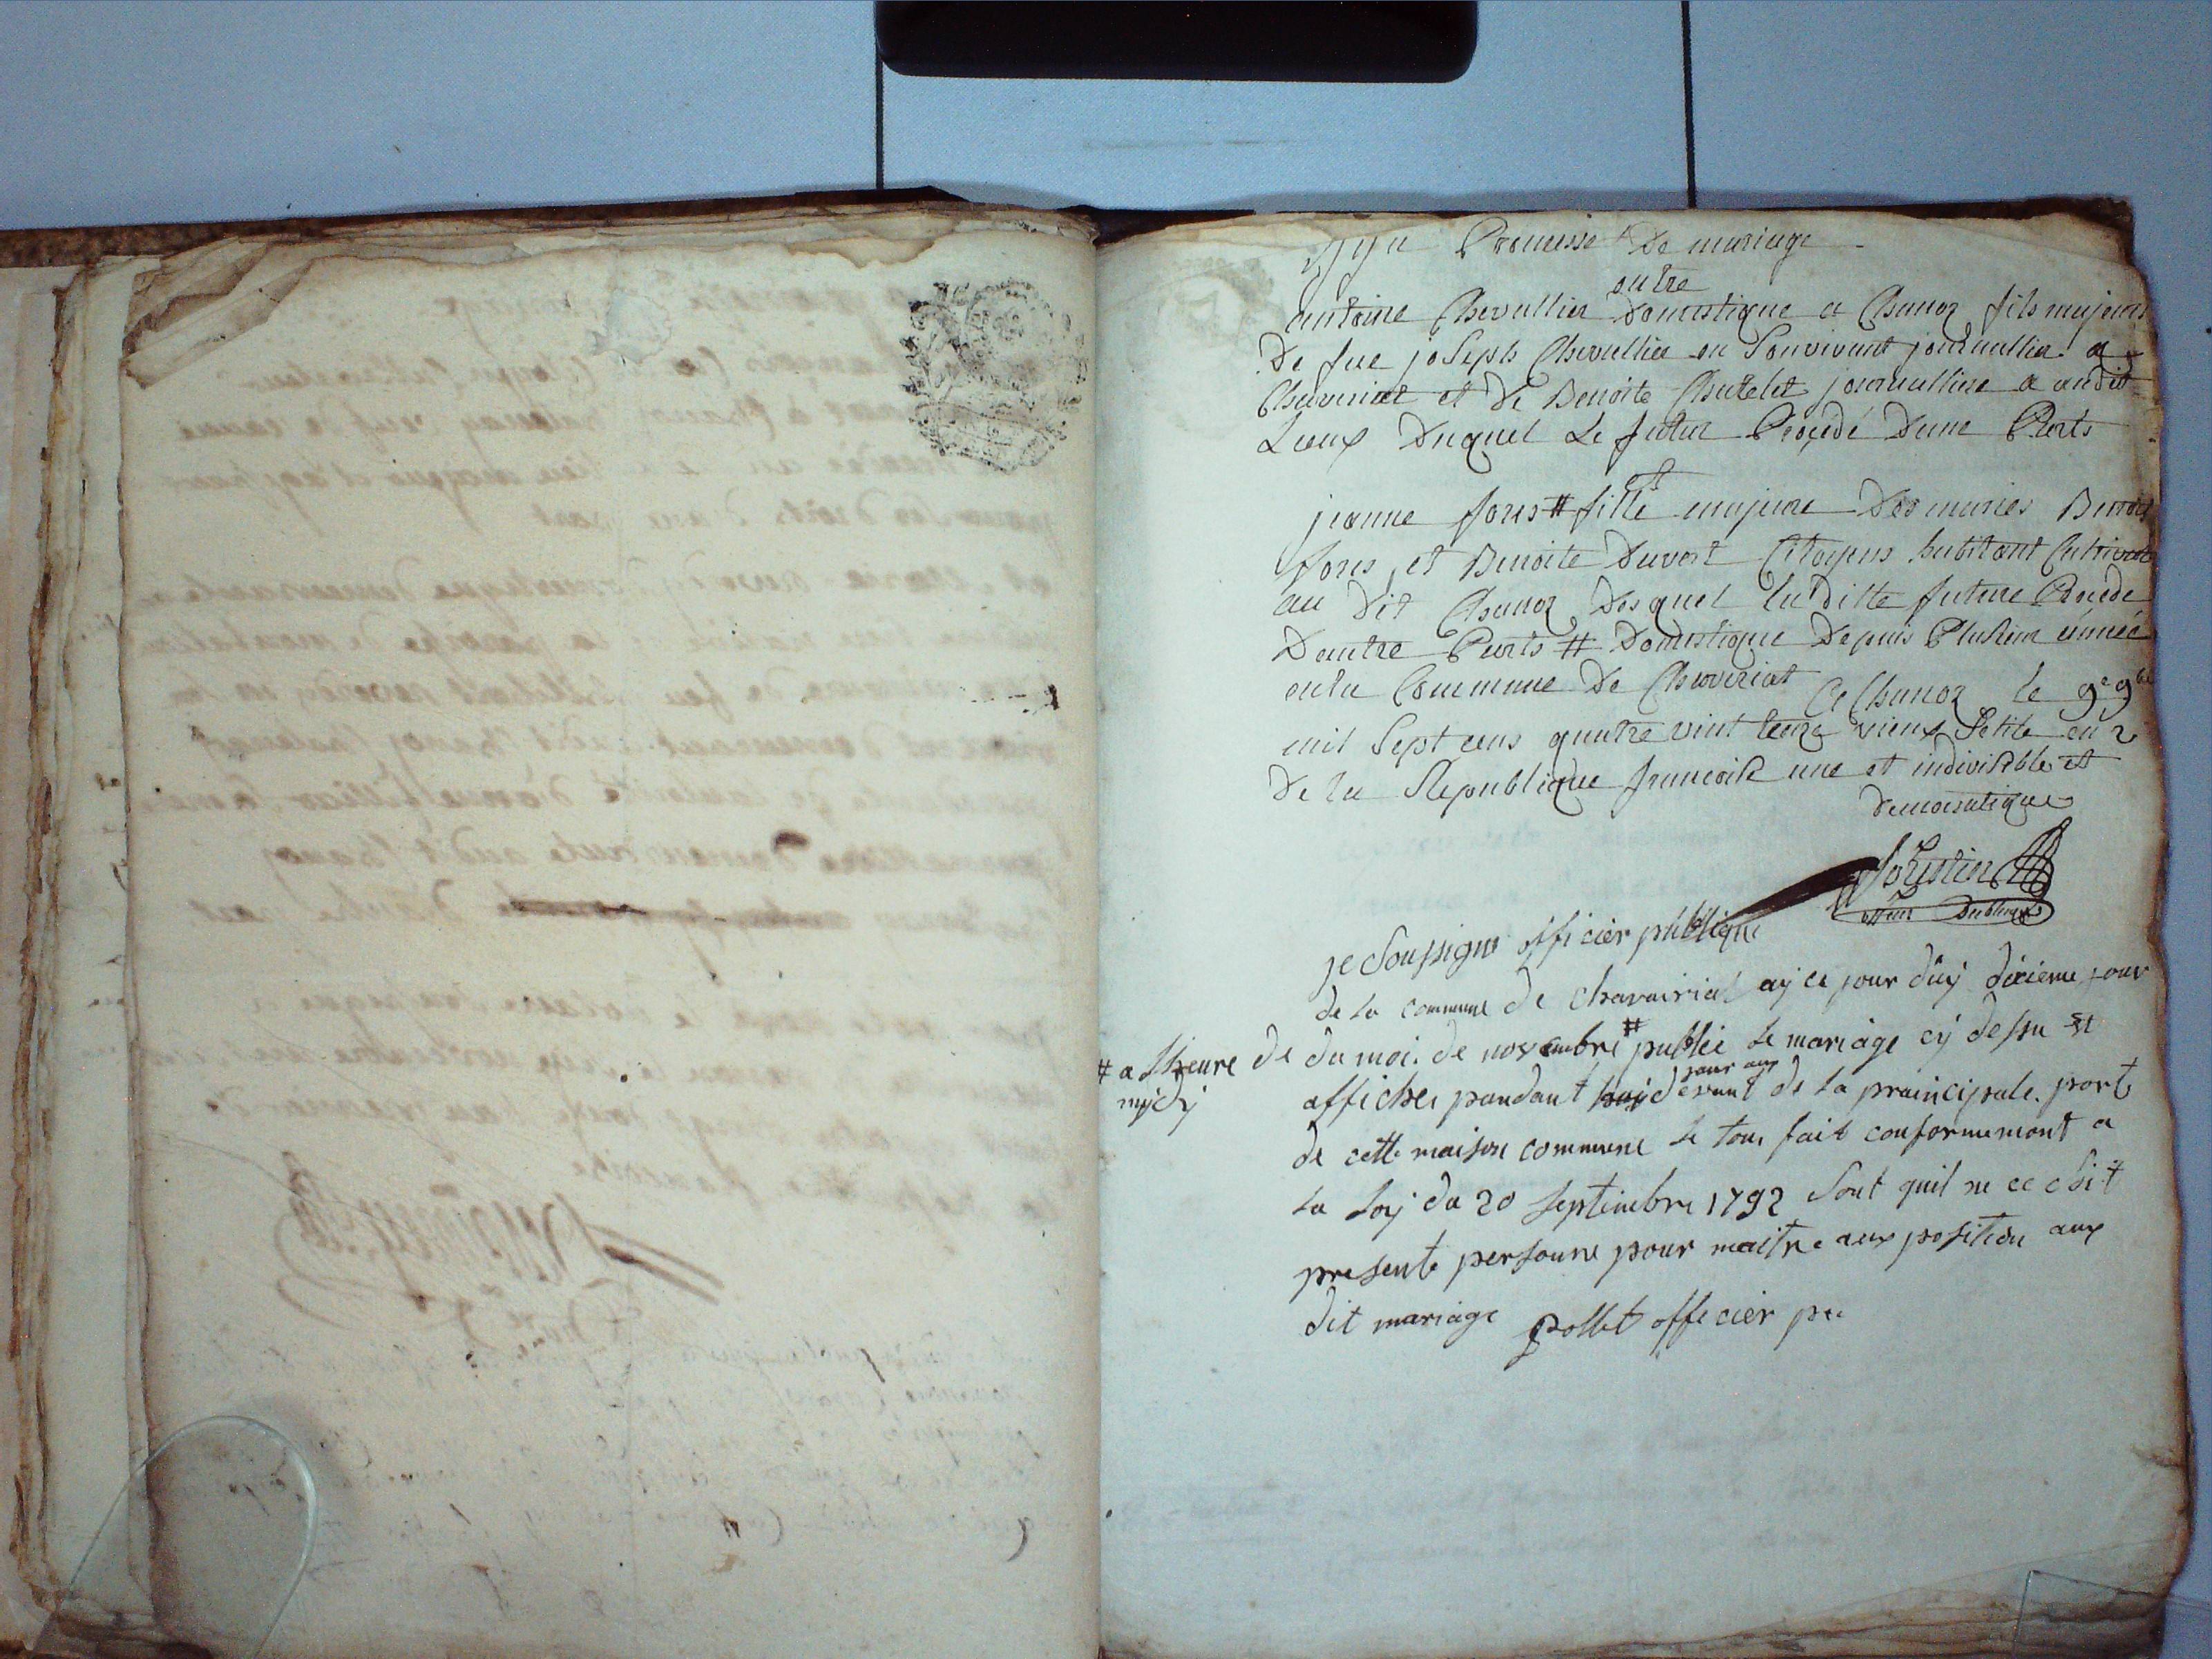 Il y a Promesse De mariage
entre
antoine Chevallier Domestique a Chanoz fils majeur
De fue joseph Chevallier en Sonvivant journallier a
Chaveriat et de Benoite Chatelet journalliere a audit
Lieux Duquel Le futur Procede Dune Parts
et
jeanne fores # fille majeure Des maries Benoit
fores et Benoite Duvert Citoyens habitant Cultivat
au Dit Chanoz Desquel laditte future Procede
Dautre Parts # Domestique Depuis Plusieur année
enla Commune De Chaveriat a Chanoz le 9e 9bre
mil Sept cens quatre vint treize vieux Stile en 2
De la Republique francoise une et indivisible et
Democratique
je Soussigne officier publique
de la commune de chavairiat ay ce jour duy dixieme jour
# a lheure de
mydy
du moi de novembre # publié le mariage cy dessu et
jour aux
affiches pandant devant de la praincipale porte
de cette maison commune le tous fait conformemont a
la loy du 20 Septembre 1792 Sont quil ne ce soit
presente personne pour maitre aux position aux
dit mariage pollet officier pu